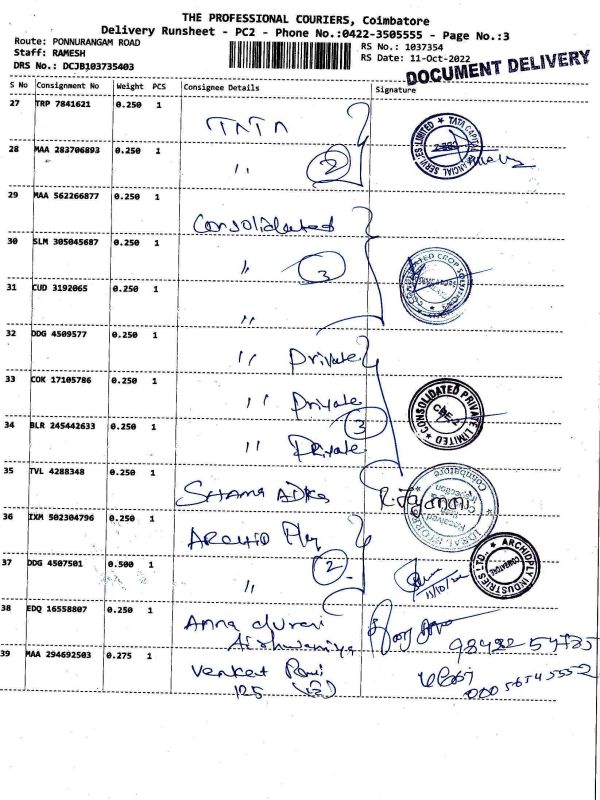 THE PROFESSIONAL COURIERS, Coimbatore
Delivery Runsheet - PC2 - Phone No.:0422-3505555 - Page No.:3
Route: PONNURANGAM ROAD
Staff: RAMESH
DRS No.: DCJB103735403
RS No.: 1037354
RS Date: 11-Oct-2022
DOCUMENT DELIVERY
S No Consignment No Weight PCS Consignee Details Signature
27 TRP 7841621 0.250 1 TATA
28 MAA 283706893 0.250 1 '' 2
TATA CAPITAL FINANCIAL SERVICES LIMITED
29 MAA 562266877 0.250 1 Consolidated
30 SLM 305045687 0.250 1 '' 3
31 CUD 3192065 0.250 1 ''
32 DDG 4509577 0.250 1 '' Private
33 COK 17105786 0.250 1 '' Private
34 BLR 245442633 0.250 1 '' Private 3
CONSOLIDATED PRIVATE LIMITED
35 TVL 4288348 0.250 1
36 IXM 502304796 0.250 1
37 DDG 4507501 0.500 1 '' 2
11/10/22
ARCHIDPLY INDUSTRIES LTD.
38 EDQ 16558807 0.250 1 Anna
39 MAA 294692503 0.275 1 Venket
125